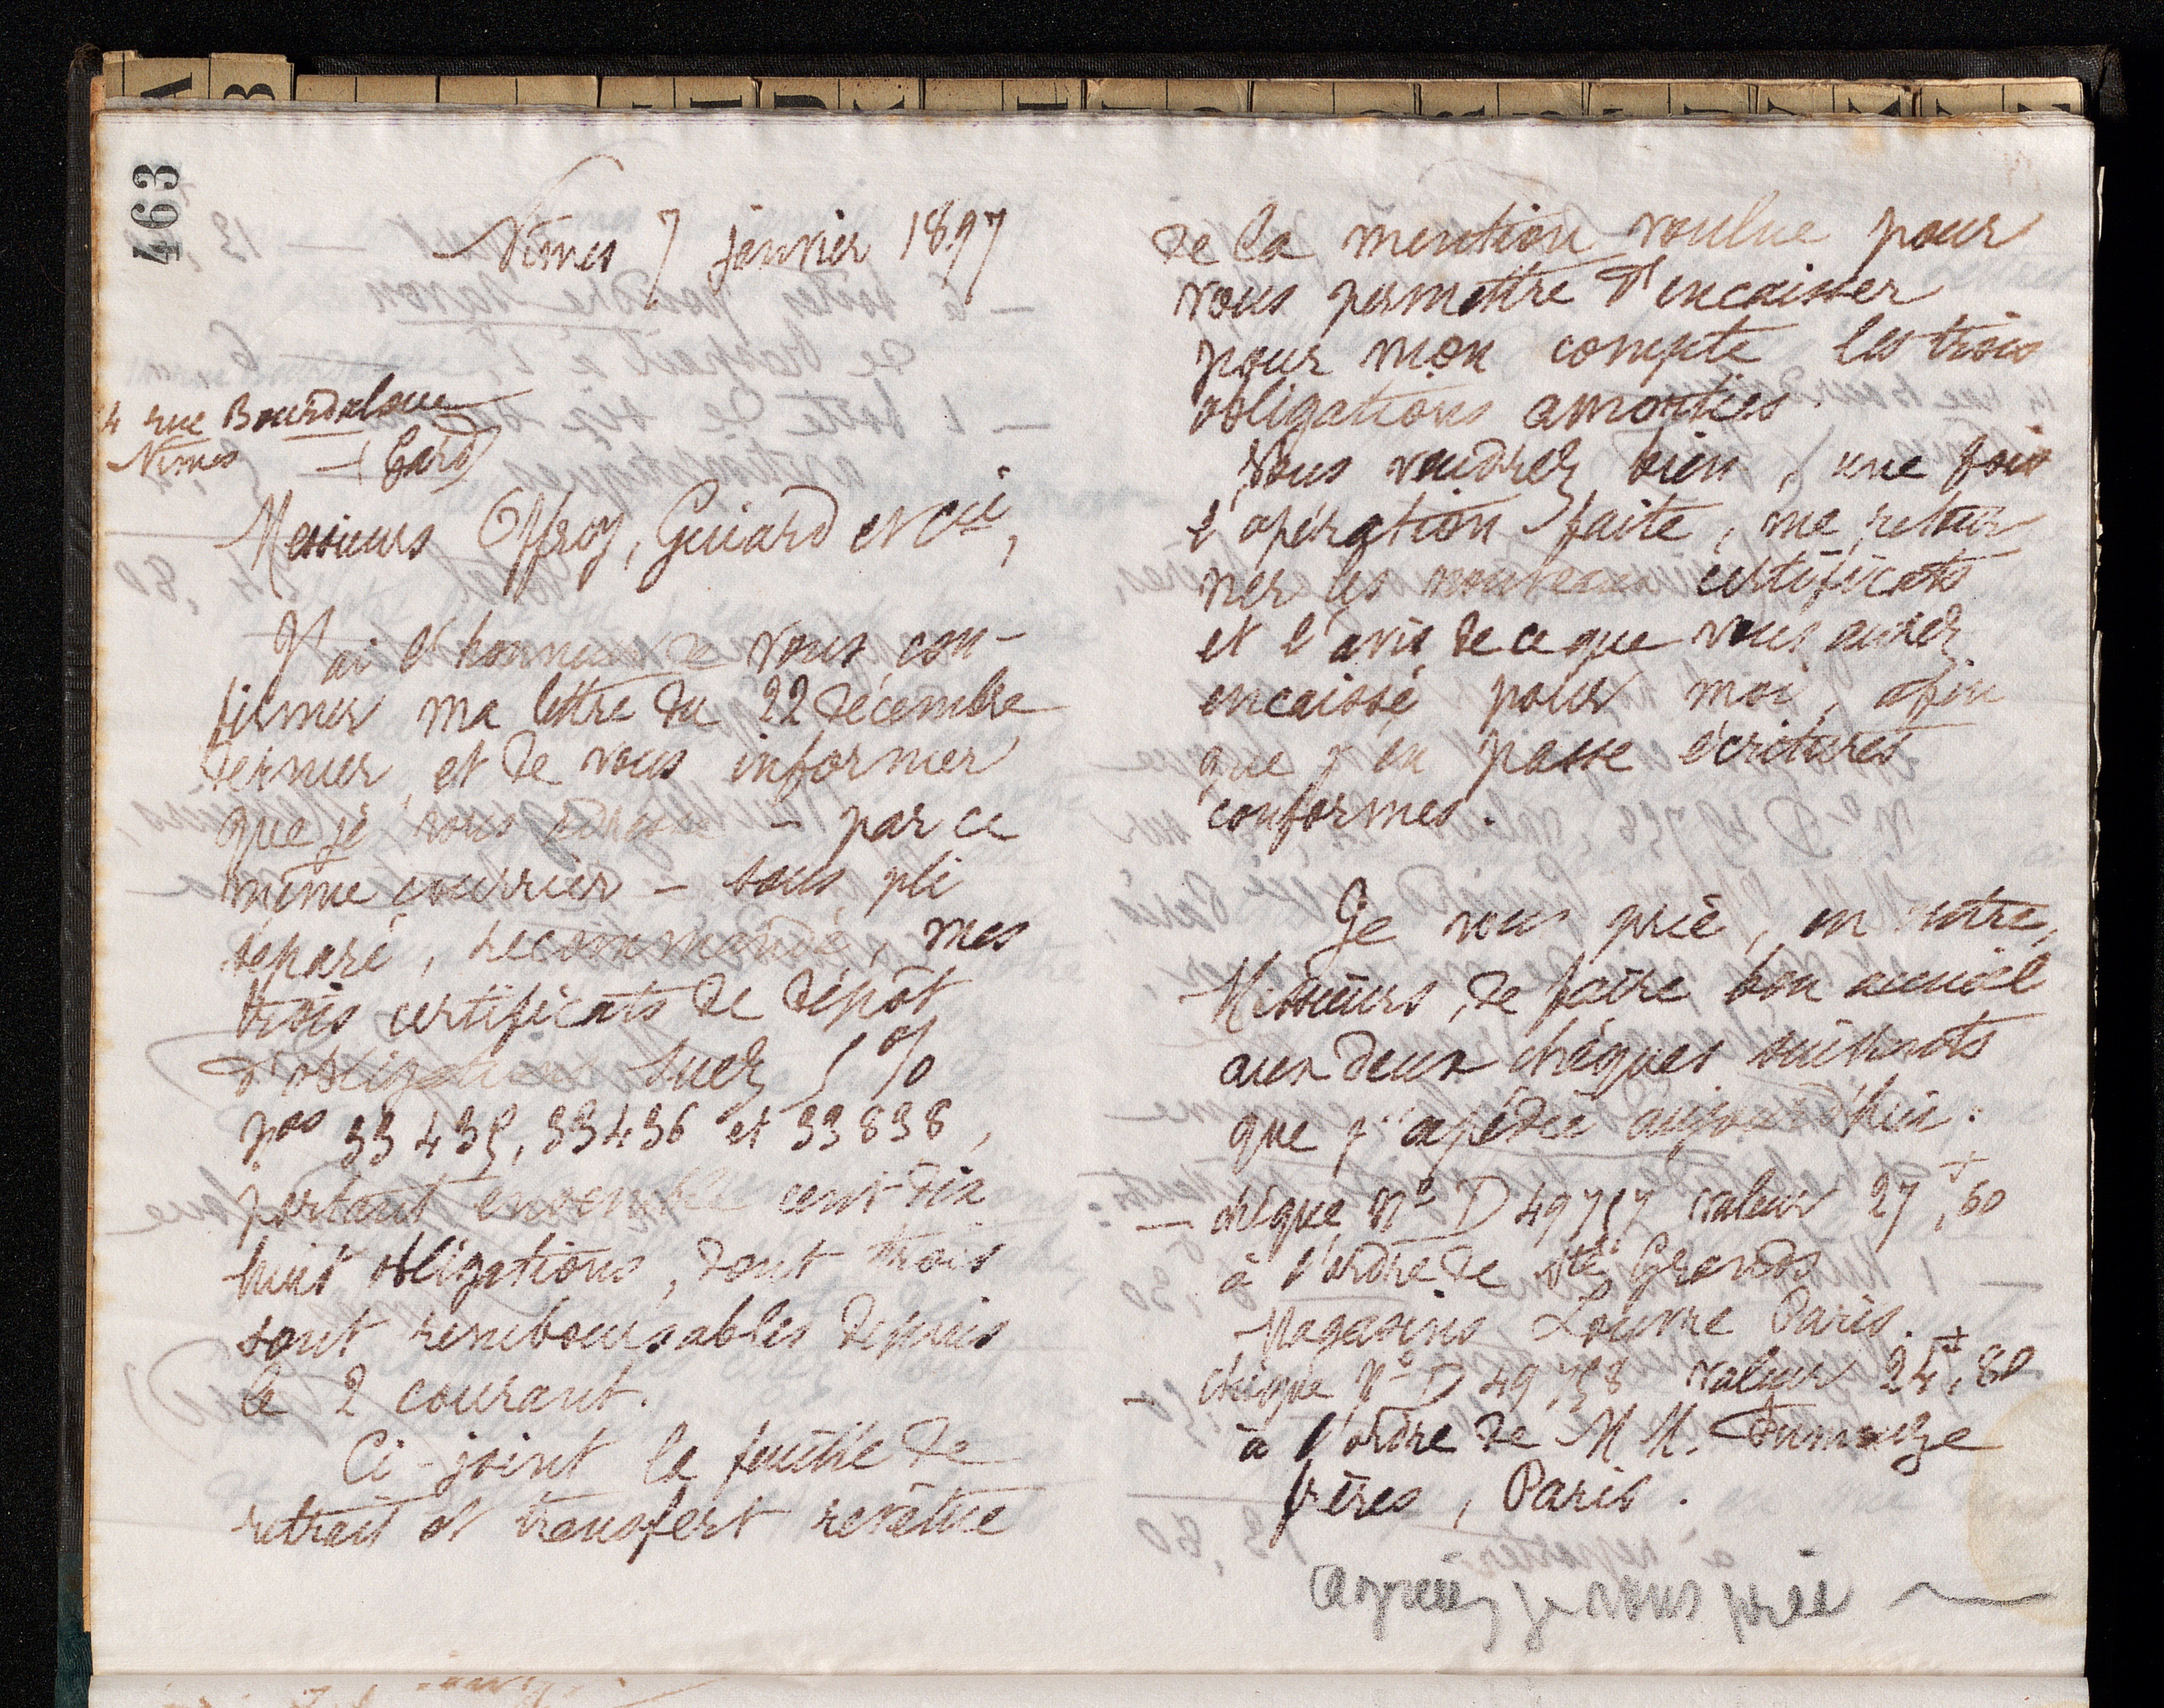 463
Nîmes 7 janvier 1897
4 rue Bourdaloue
Nîmes (Gard)
Messieurs Offroy, Guiard et Cie,
J'ai l'honneur de vous con-
firmer ma lettre du 22 décembre
dernier, et de vous informer
que je vous adresse - par ce
même courrier - sous pli
séparé, recommandé, mes
trois certificats de dépôt
d'obligations Suez 5%
nos 33435, 33436 et 33838,
portant ensemble cent dix
huit obligations, dont trois
sont remboursables depuis
le 2 courant.
Ci-joint la feuille de
retrait et transfert revêtue
de la mention voulue pour
vous permettre d'encaisser
pour mon compte les trois
obligations amorties.
Vous voudrez bien, une fois
l'opération faite, me retour
ner les nouveaux certificats
et l'avis de ce que vous aurez
encaissé pour moi, afin
que j'en passe écritures
conformes.
Je vous prie, en outre,
Messieurs, de faire bon accueil
aux deux chèques suivants
que j'expédie aujourd'hui :
— chèque No D 49757 valeur 27f,60
à l'ordre de Sté Grands
Magasins Louvre Paris.
— chèque No D 49758 valeur 24f,80
à l'ordre de M M. Fumouze
frères, Paris.
Agréez je vous prie